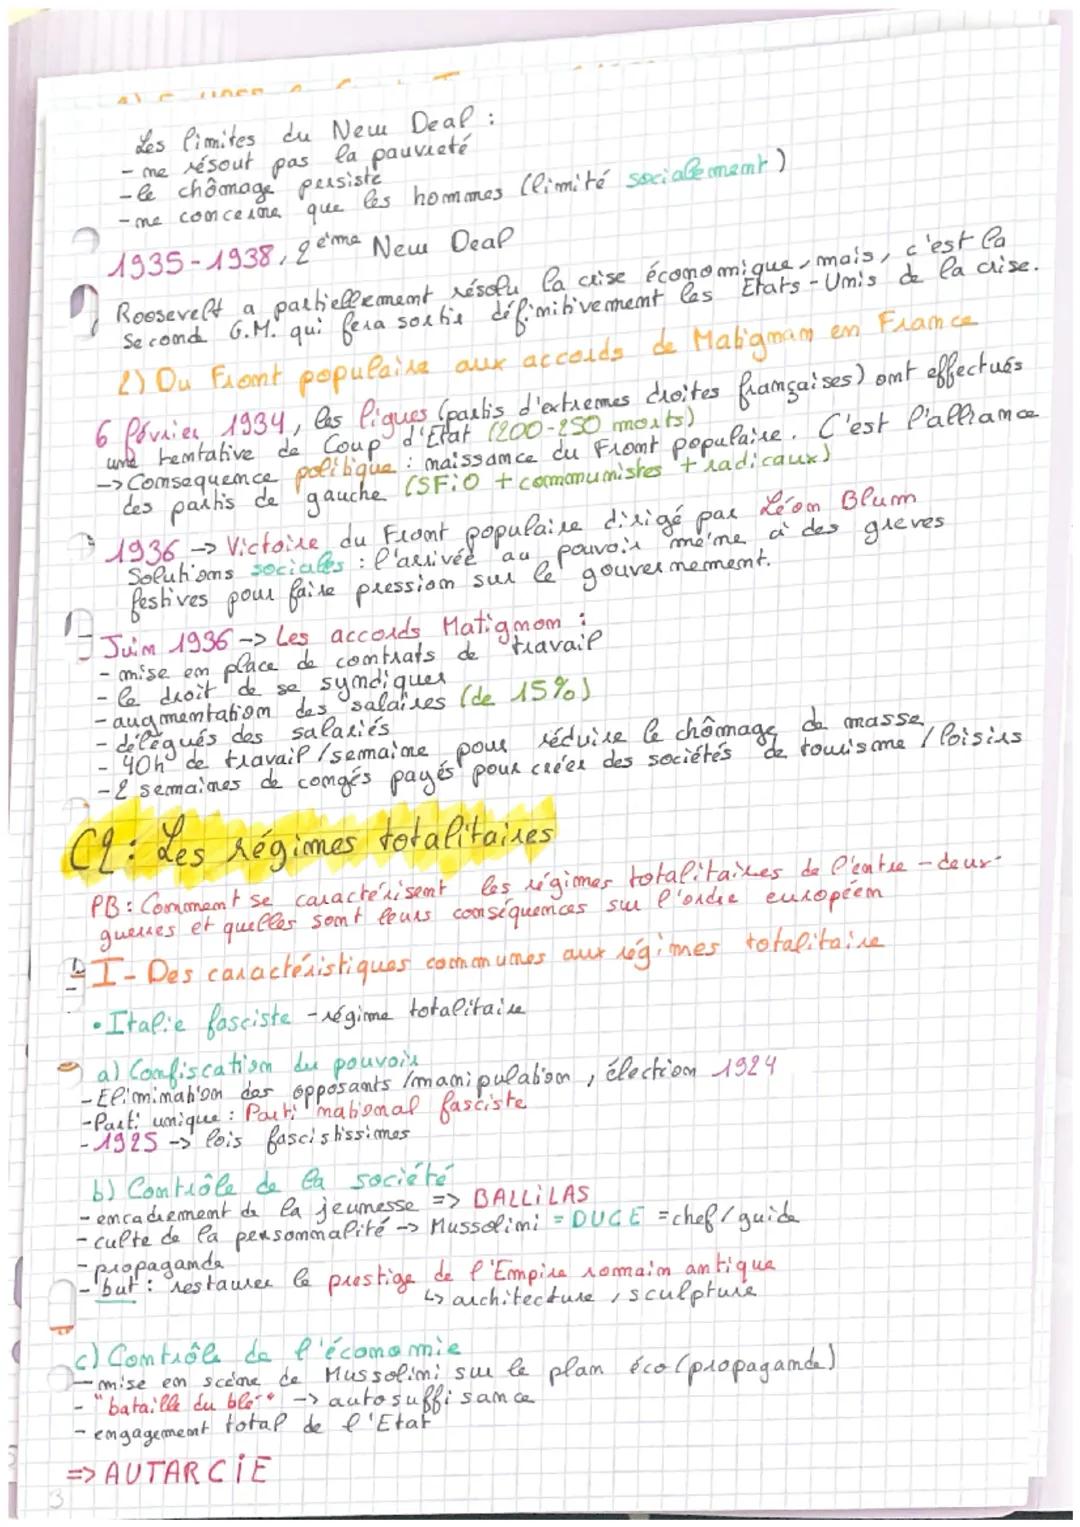 Les limites du New Deal :
- ne résout pas la pauvreté
- le chômage persiste
- ne concerne que les hommes (limité socialement)
1935-1938, 2ème New Deal
Roosevelt a partiellement résolu la crise économique, mais, c'est la
Seconde G.M. qui fera sortir définitivement les Etats-Unis de la crise.
2) Du Front populaire aux accords de Matignon en France
6 février 1934, les ligues (partis d'extremes droites françaises) ont effectués
une tentative de Coup d'Etat (200-250 morts)
-> Consequence politique : naissance du Front populaire. C'est l'alliance
des partis de gauche (SFiO + communistes + radicaux)
1936 -> Victoire du Front populaire dirigé par Léon Blum
Solutions sociales : l'arrivée au pouvoir mène à des greves
festives pour faire pression sur le gouvernement.
Juin 1936 -> Les accords Matignon :
- mise en place de contrats de travail
- le droit de se syndiquer
- augmentation des salaires (de 15%)
- délégués des salariés
- 40h de travail / semaine pour réduire le chômage de masse
- 2 semaines de congés payés pour créer des sociétés de tourisme / loisirs
C2 : Les régimes totalitaires
PB : Comment se caractérisent les régimes totalitaires de l'entre-deux-
guerres et quelles sont leurs conséquences sur l'ordre européen
I - Des caractéristiques communes aux régimes totalitaire
• Italie fasciste - régime totalitaire
a) Confiscation du pouvoir
- Elimination des opposants / manipulation, élection 1924
- Parti unique : Parti national fasciste
- 1925 -> lois fascistissimes
b) Contrôle de la société
- encadrement de la jeunesse => BALLiLAS
- culte de la personnalité -> Mussolini = DUCE = chef / guide
- propagande
- but : restaurer le prestige de l'Empire romain antique
↳ architecture, sculpture
c) Contrôle de l'économie
- mise en scène de Mussolini sur le plan éco (propagande)
- "bataille du blé" -> autosuffisance
- engagement total de l'Etat
=> AUTARCiE
3